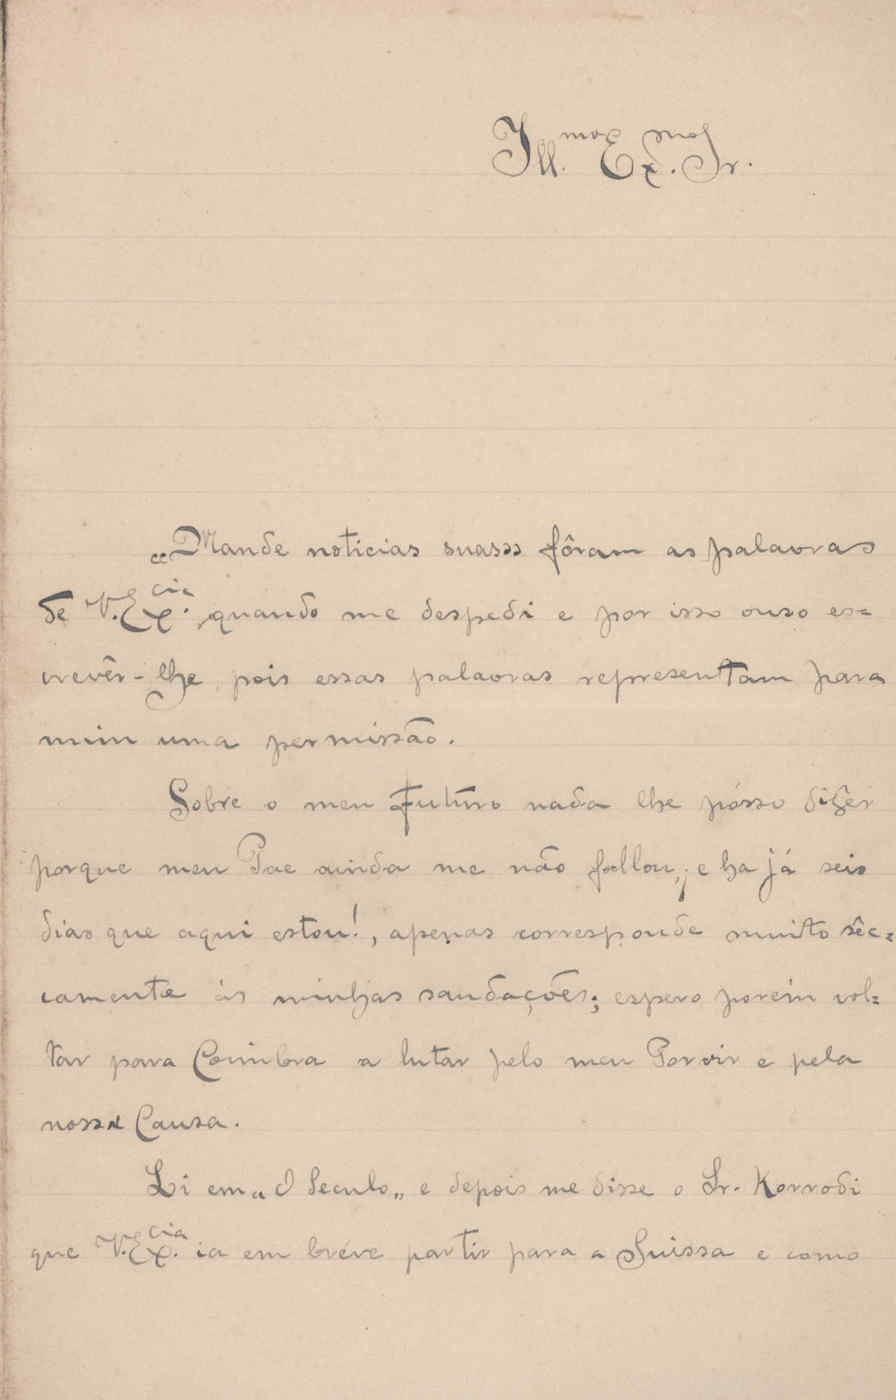 Ill.mo Ex.mo Sr.
«Mande noticias suas» fôram as palavras
de V. Ex.cia quando me despedi e por isso ouso es=
crevêr-lhe, pois essas palavras representam para
mim uma permissão.
Sobre o meu Futuro nada lhe pósso dizer
porque meu Pae ainda me não fallou, e ha já seis
dias que aqui estou!, apenas corresponde muito sêc=
camente ás minhas saudações; espero porem vol=
tar para Coimbra a lutar pelo meu Porvir e pela
nossa Causa.
Li em „O Seculo„ e depois me disse o Sr. Korrodi
que V. Ex.cia ia em bréve partir para a Suissa e como